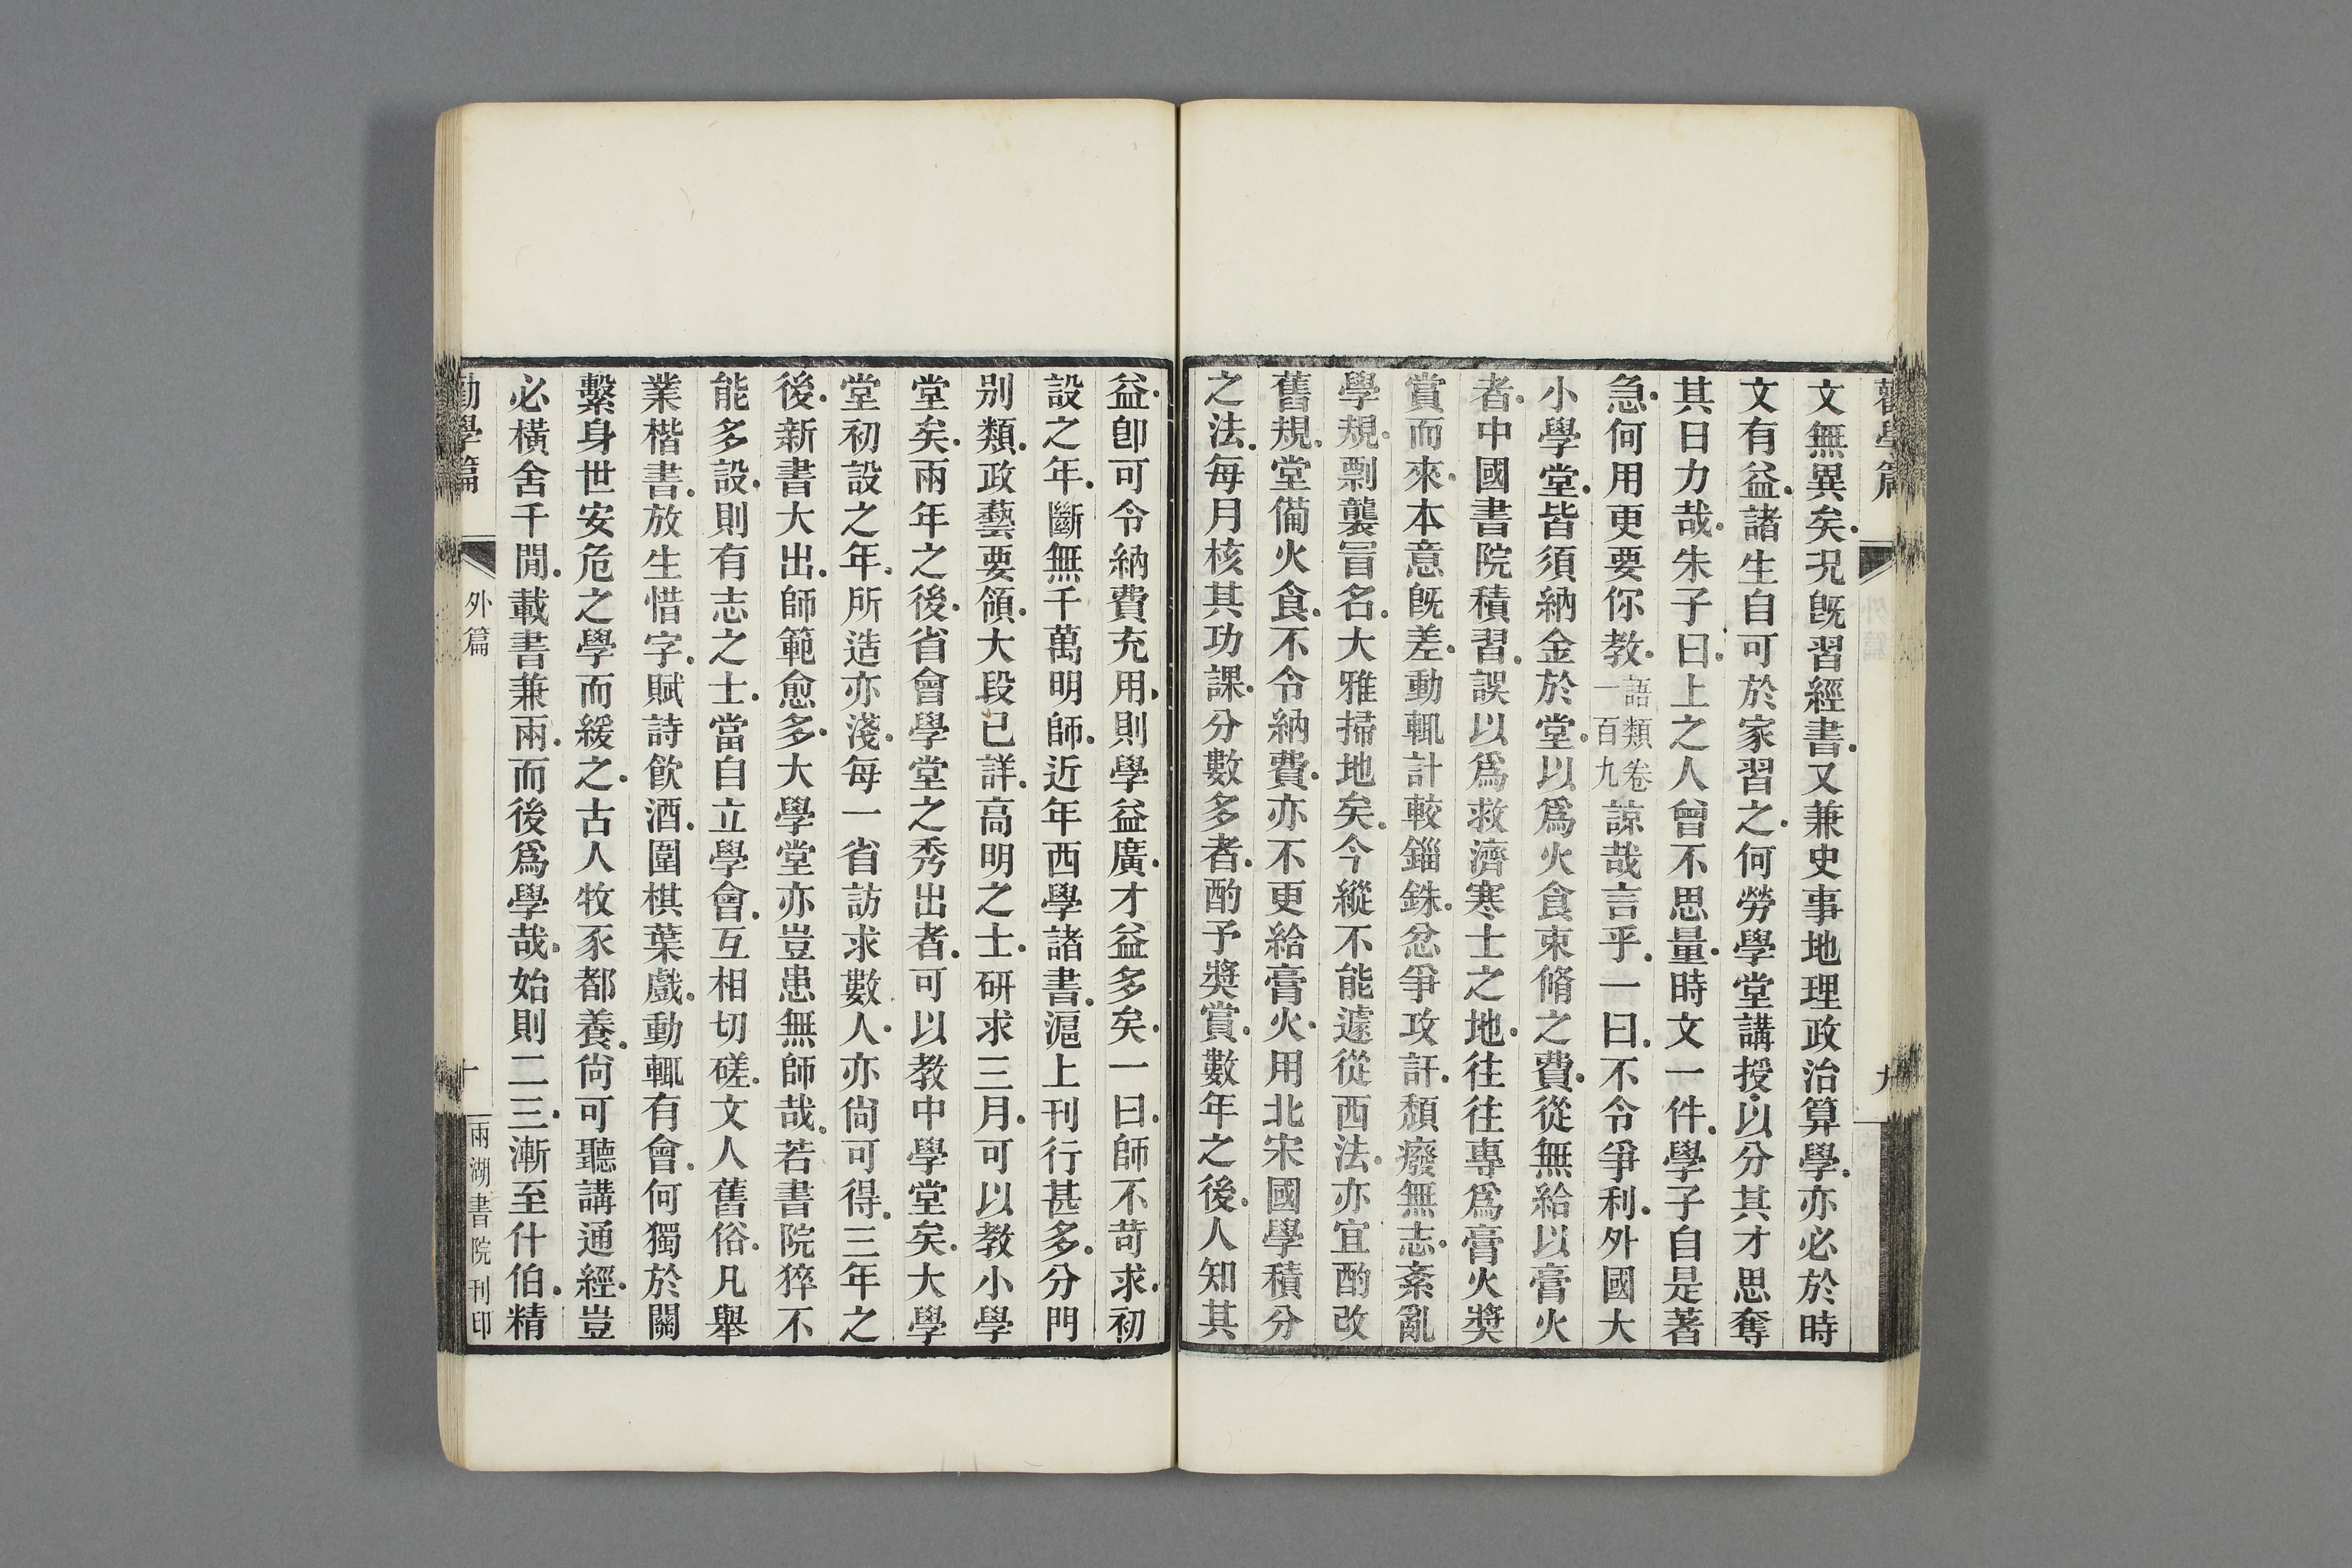 勸學篇
九
文無異矣況旣習經書又兼史事地理政治算學亦必於時
文有益諸生自可於家習之何勞學堂講授以分其才思奪
其日力哉朱子曰上之人曾不思量時文一件學子自是著
急何用更要你教語類卷一百九諒哉言乎一曰不令爭利外國大
小學堂皆須納金於堂以爲火食束脩之費從無給以膏火
者中國書院積習誤以爲救濟寒士之地往往專爲膏火奬
賞而來本意旣差動輒計較錙銖忿爭攻訐頽廢無志紊亂
學規剽襲冒名大雅掃地矣今縱不能遽從西法亦宜酌改
舊規堂備火食不令納費亦不更給膏火用北宋國學積分
之法每月核其功課分數多者酌予奬賞數年之後人知其
益卽可令納費充用則學益廣才益多矣一曰師不苛求初
設之年斷無千萬明師近年西學諸書滬上刊行甚多分門
別類政藝要領大段已詳高明之士硏求三月可以教小學
堂矣兩年之後省會學堂之秀出者可以教中學堂矣大學
堂初設之年所造亦淺每一省訪求數人亦尙可得三年之
後新書大出師範愈多大學堂亦豈患無師哉若書院猝不
能多設則有志之士當自立學會互相切磋文人舊俗凡舉
業楷書放生惜字賦詩飮酒圍棋葉戲動輒有會何獨於關
繫身世安危之學而緩之古人牧豕都養尙可聽講通經豈
必橫舍千閒載書兼兩而後爲學哉始則二三漸至什伯精
勸學篇
外篇
十
兩湖書院刊印